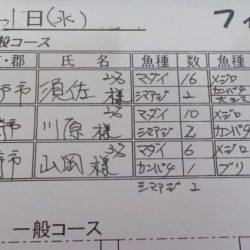 1日(水)
一般コース
市・郡 氏 名 魚種 数 魚種
市 須佐 様 マダイ 16 メジロ
シマアジ 2 カンパチ
市 川原 様 マダイ 10 メジロ
シマアジ 2 カンパチ
市 山岡 様 マダイ 6 メジロ
カンパチ 1 ブリ
シマアジ 2
一般コース